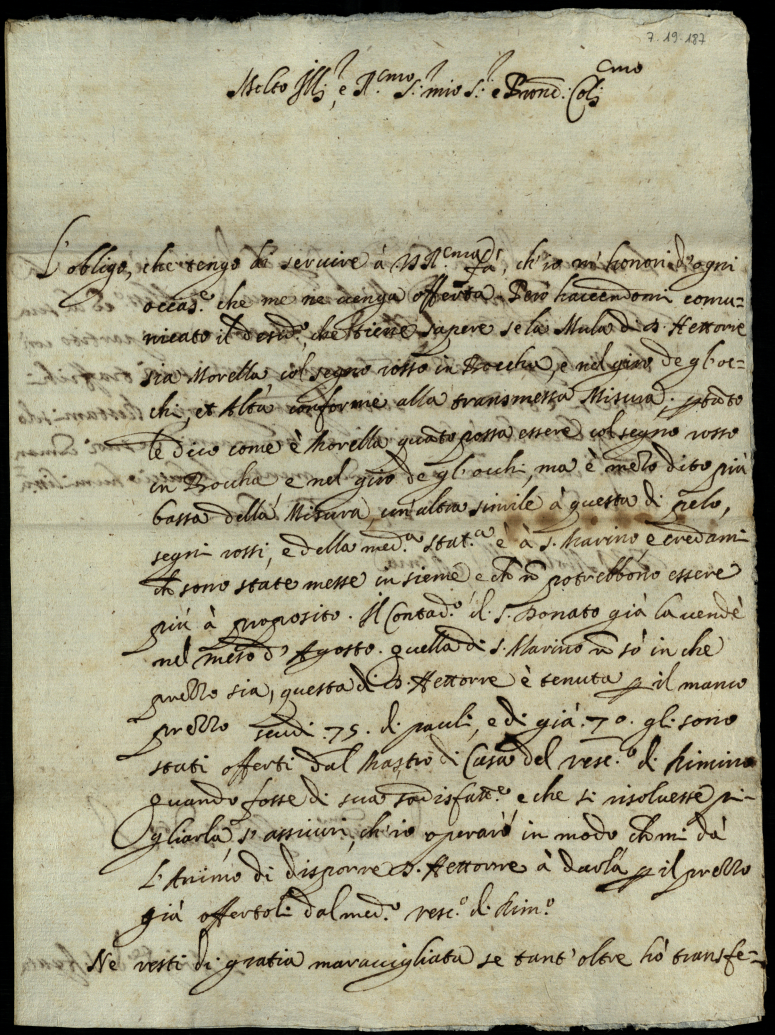 7·19·187
Molto Ill.re e R.mo S.r mio S.r e Pron. Col.mo
L'obligo, che tengo di servire à V. R.ma fà, ch'io m'honori d'ogni
occas.e che me ne venga offerta. Però havendomi comu-
nicato il desid.o che tiene sapere se la Mula di D. Hettorre
sia Morella col segno rosso in Boccha, e nel giro de gl'oc-
chi, et Alta conforme alla transmessa Misura. ptãto
le dico come è Morella quãto possa essere col segno rosso
in Boccha e nel giro de gl'occhi, ma è mezo dito più
bassa della Misura, un'altra simile à questa di pelo,
segni rossi, e della med.a stat.a è à S. Marino, e credami
ch sono state messe insieme e ch nõ potrebbono essere
più à proposito. Il Contad.o il S. Donato già la vendè
nel mese d'Agosto. quella di S. Marino nõ sò in che
prezzo sia, questa di D. Hettorre è tenuta p il manco
prezzo scudi .75. di pauli, e di già .70. gli sono
stati offerti dal Mastro di Casa del Vesc.o di Rimino
quando fosse di sua sodisfatt.e e che si risolvesse pi-
gliarla s'assicuri, ch'io operarò in modo ch mi dà
l'Animo di disporre D. Hettorre à darla p il prezzo
già offertoli dal med.o Vesc.o di Rim.o
Ne resti di gratia maravigliata se tant'oltre hò transfe-